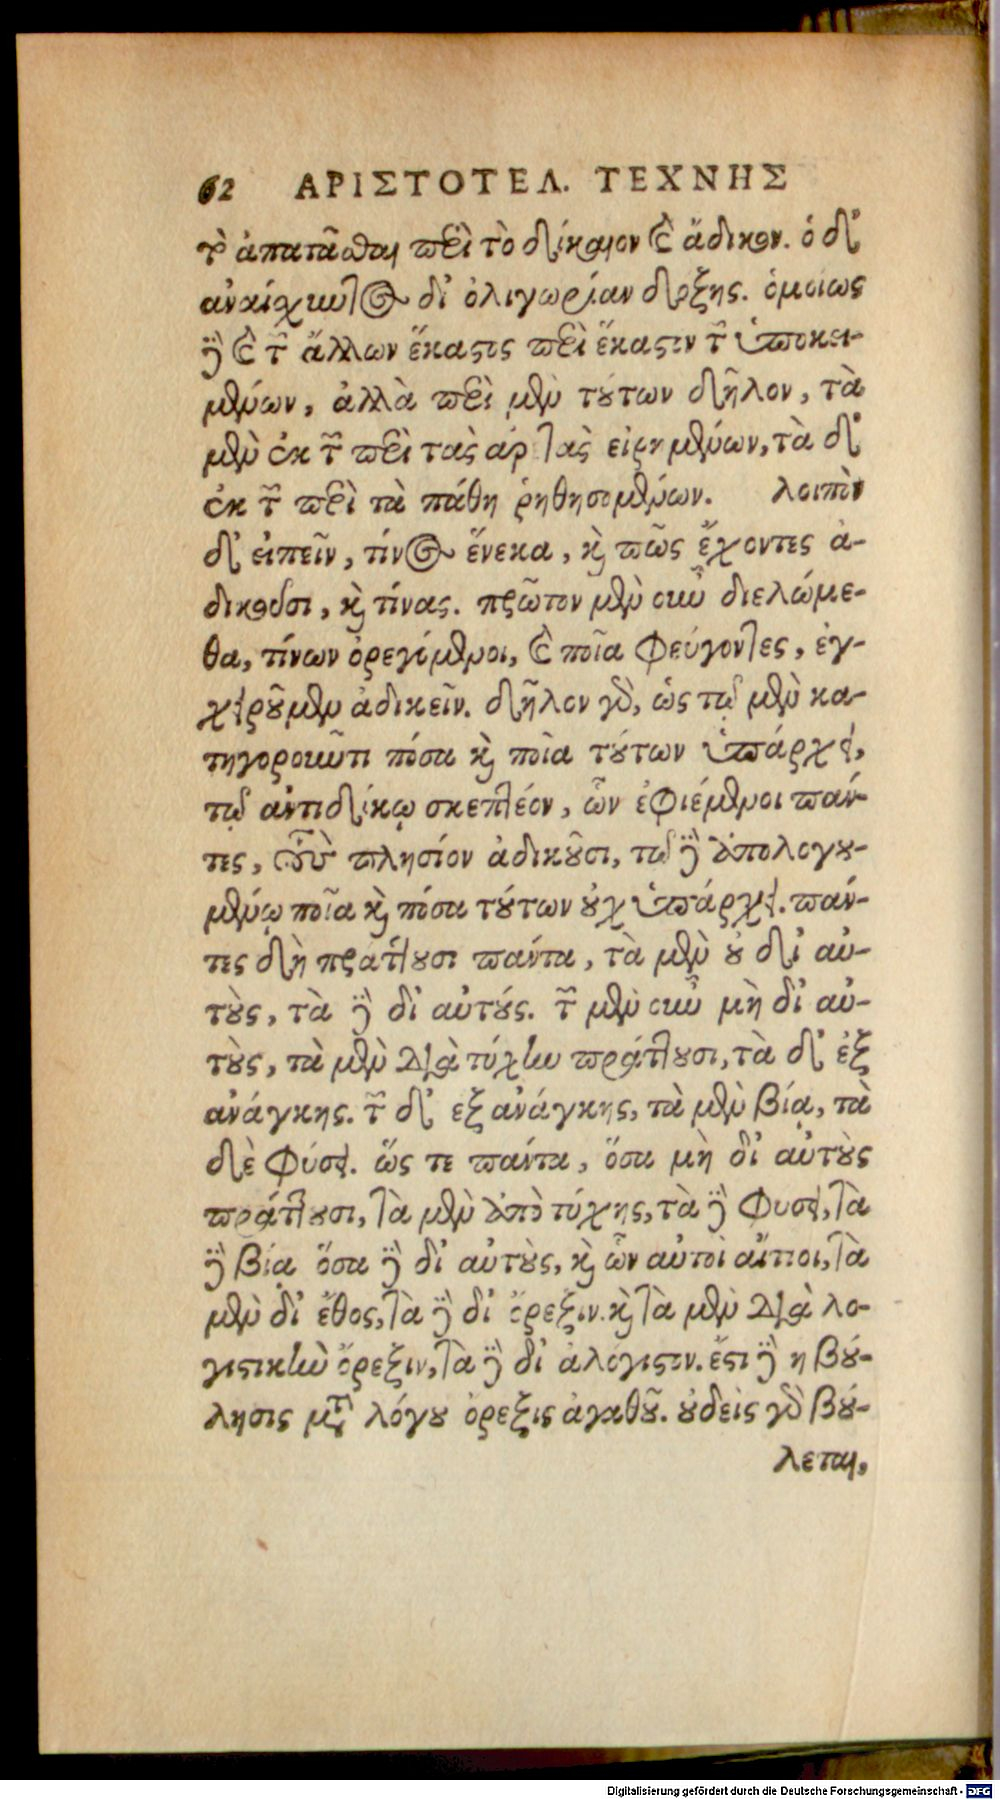 62 ΑΡΙΣΤΟΤΕΛ. ΤΕΧΝΗΣ
τὸ ἀπατᾶσθαι περὶ τὸ δίκαιον καὶ ἄδικον. ὁ δ'
ἀναίσχυντος δι' ὀλιγωρίαν δόξης. ὁμοίως
δὲ καὶ τῶν ἄλλων ἕκαστος περὶ ἕκαστον τῶν ὑποκει-
μένων, ἀλλὰ περὶ μὲν τούτων δῆλον, τὰ
μὲν ἐκ τῶν περὶ τὰς ἀρετὰς εἰρημένων, τὰ δ'
ἐκ τῶν περὶ τὰ πάθη ῥηθησομένων. λοιπὸν
δ' εἰπεῖν, τίνος ἕνεκα, καὶ πῶς ἔχοντες ἀ-
δικοῦσι, καὶ τίνας. πρῶτον μὲν οὖν διελώμε-
θα, τίνων ὀρεγόμενοι, καὶ ποῖα φεύγοντες, ἐγ-
χειροῦμεν ἀδικεῖν. δῆλον γὰρ, ὡς τῷ μὲν κα-
τηγοροῦντι πόσα καὶ ποῖα τούτων ὑπάρχει,
τῷ ἀντιδίκῳ σκεπτέον, ὧν ἐφιέμενοι πάν-
τες, τοὺς πλησίον ἀδικοῦσι, τῷ δὲ ἀπολογου-
μένῳ ποῖα καὶ πόσα τούτων οὐχ ὑπάρχει. πάν-
τες δὴ πράττουσι πάντα, τὰ μὲν οὐ δι' αὑ-
τοὺς, τὰ δὲ δι' αὑτούς. τῶν μὲν οὖν μὴ δι' αὑ-
τοὺς, τὰ μὲν διὰ τύχην πράττουσι, τὰ δ' ἐξ
ἀνάγκης. τῶν δ' εξ ἀνάγκης, τὰ μὲν βίᾳ, τὰ
δὲ φύσει. ὥς τε πάντα, ὅσα μὴ δι' αὑτοὺς
πράττουσι, τὰ μὲν ἀπὸ τύχης, τὰ δὲ φυσει, τὰ
δὲ βίᾳ ὅσα δὲ δι' αὑτοὺς, καὶ ὧν αὐτοὶ αἴτιοι, τὰ
μὲν δι' ἔθος, τὰ δὲ δι' ὄρεξιν. καὶ τὰ μὲν διὰ λο-
γιστικὴν ὄρεξιν, τὰ δὲ δι' ἀλόγιστον. ἔστι δὲ η βού-
λησις μετὰ λόγου ὀρεξις ἀγαθοῦ. οὐδεὶς γὰρ βού-
λεται,
Digitalisierung gefördert durch die Deutsche Forschungsgemeinschaft - DFG